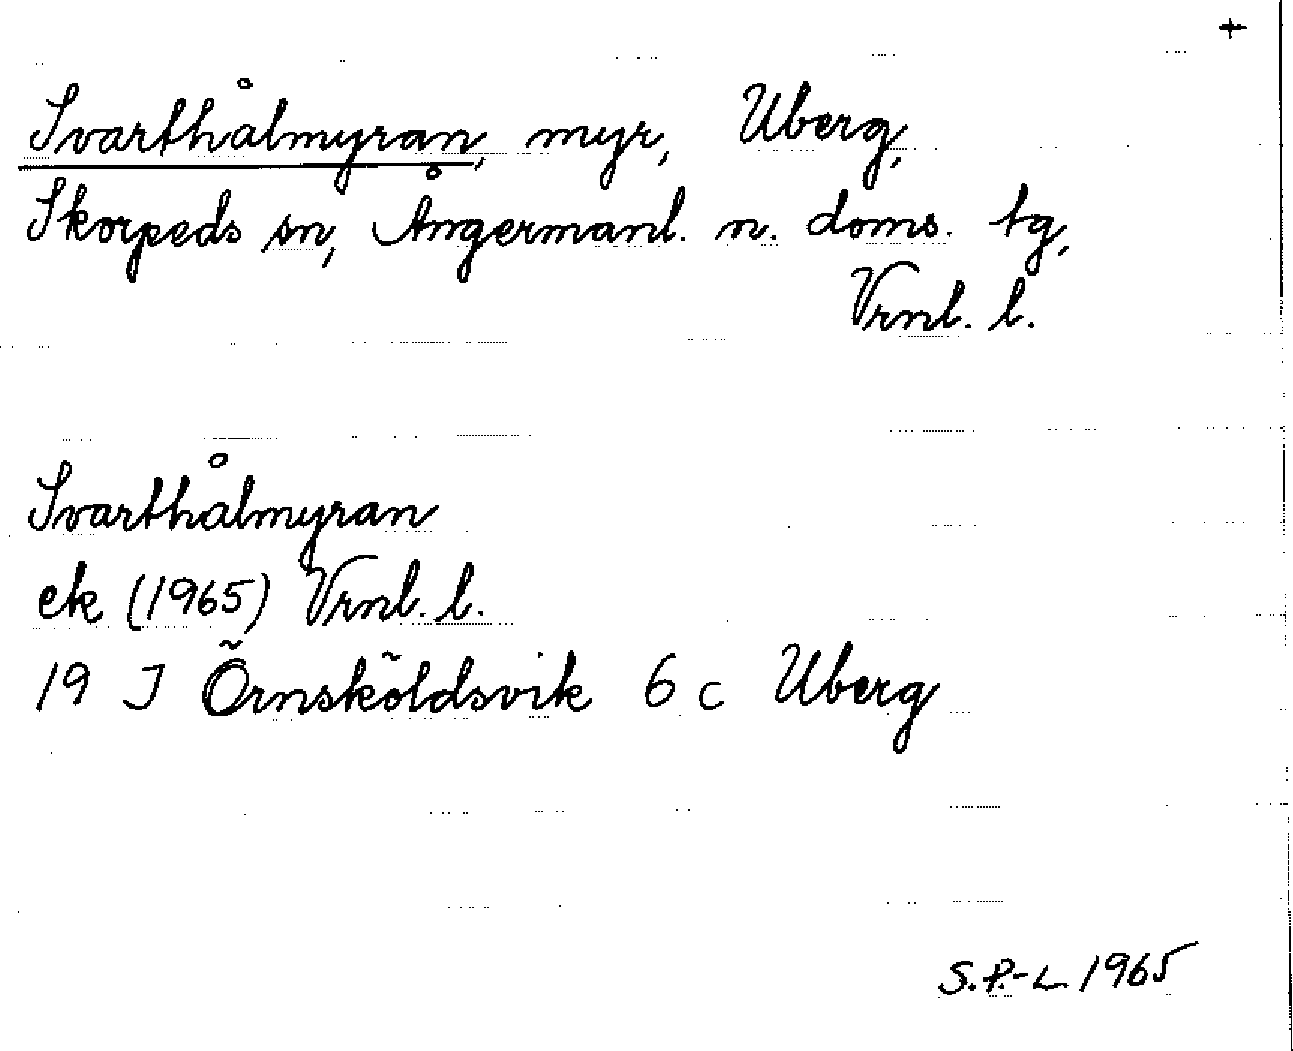 +
Svarthålmyran, myr, Uberg,
Skorpeds sn, Ångermanl. n. doms. tg,
Vrnl. l.
Svarthålmyran
ek (1965) Vrnl. l.
19 J Örnsköldsvik 6 c Uberg
S.P.-L 1965